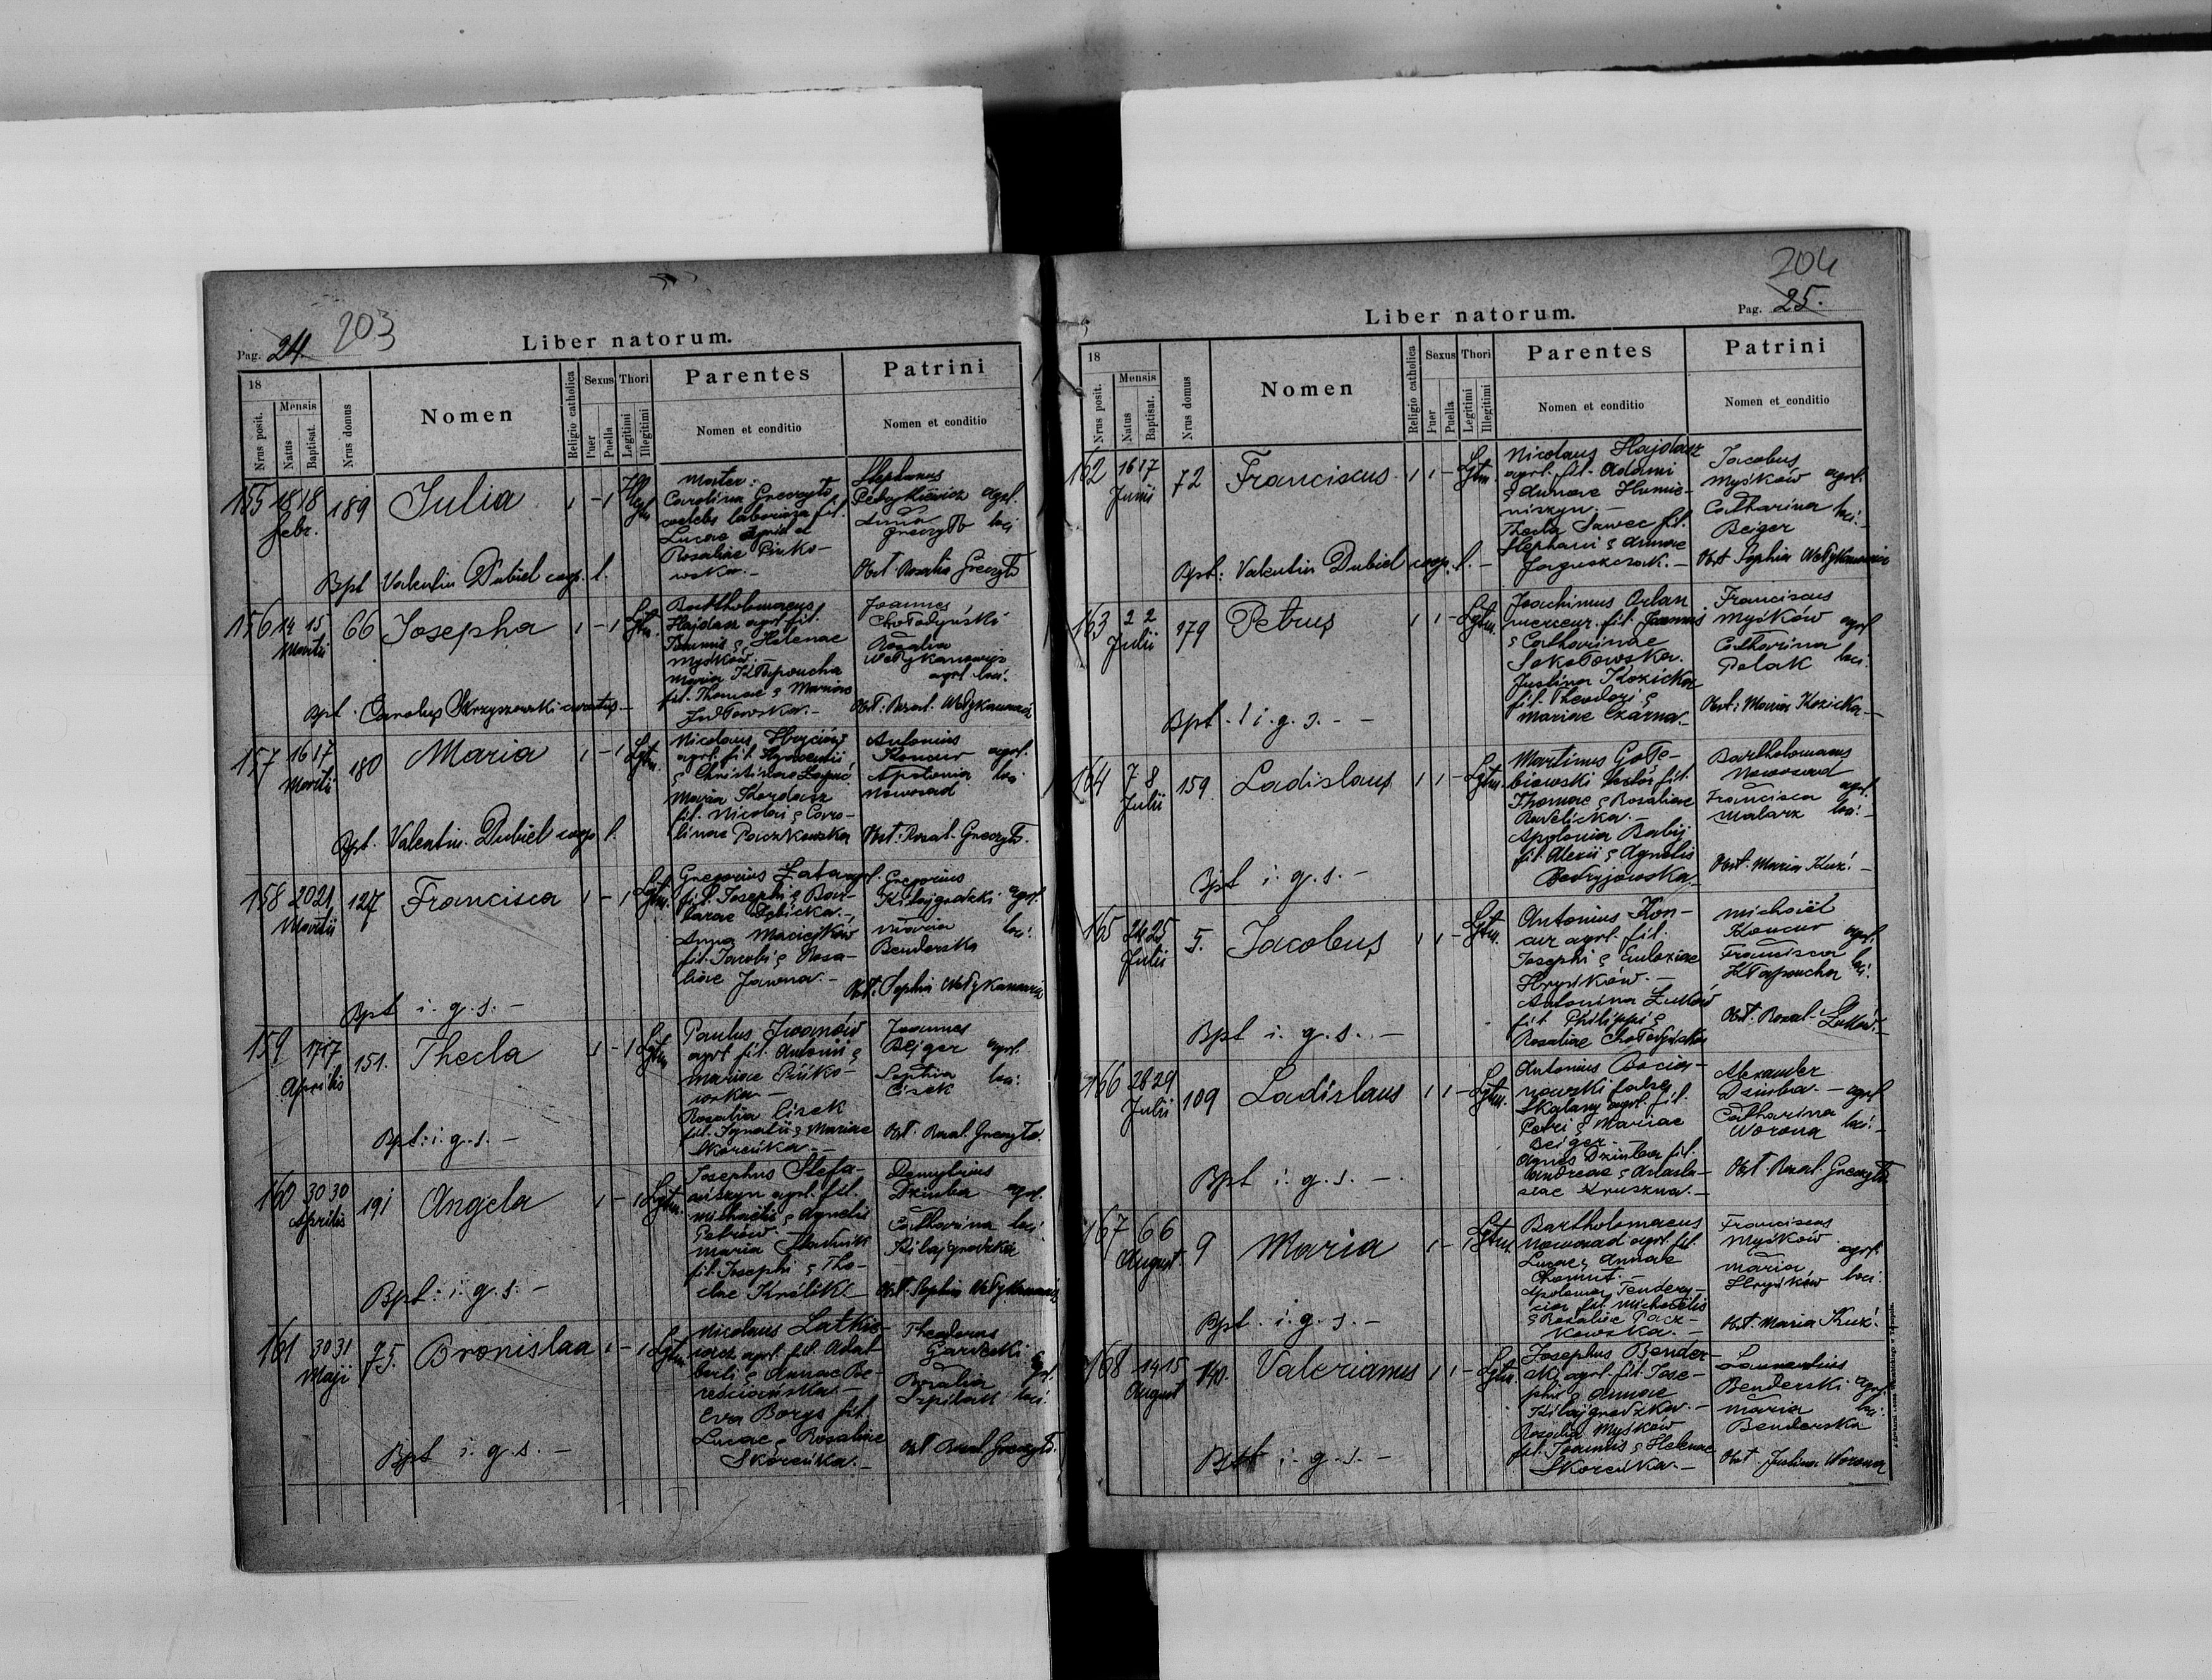 203
Pag. 24.
Liber natorum.
18
Nrus posit.
Mensis
Natus
Baptisat.
Nrus domus
Nomen
Religio catholica
Sexus
Puer
Puella
Thori
Legitimi
Illegitimi
Parentes
Nomen et conditio
Patrini
Nomen et conditio
155 18 18 Febr. 189 Julia 1 - 1
Mater:
Carolina Greczyło
coelebs laboriosa fil.
Lucae et
Rosaliae Pińko-
wska.-
Stephanus
Petrykiewicz agrl.
Anna
Greczyło loci
Obst. Rosalia Greczyło
Bpt Valentin Dubiel coop. l.
156 14 15 Martii 66 Josepha 1 - 1 Lgtm.
Bartholomaeus
Hajdasz agrl. fil.
Joannis & Helenae
Myśków.-
Maria Kłapoucha
fil. Thomae & Mariae
Joannes
Chołodyński
Rosalia
Wełykanowicz
agrl. loci.
Obst: Rosal. Wełykanowicz
Bpt. Carolus Skrzyszowski curatus -
157 16 17 Martii 180 Maria 1 - 1 Lgtm.
Nicolaus
agrl. fil.
Maria Kordasz
fil. Nicolai & Caro-
linae Paczkowska
Antonius
Koncur agrl.
Apolonia loci
Nowosad
Obst: Rosal. Greczyło.
Bpt. Valentin. Dubiel coop. l.
158 20 21 Martii 127 Francisca 1 - 1 Lgtm.
Gregorius Łata agrl.
fil. Josephi & Bar-
barae Dębicka.-
Anna Maciejków
fil. Jacobi & Rosa-
liae Jawna.-
Gregorius
Kitajgrodzki agrl.
Maria loci.
Benderska
Obst. Sophia Wełykanowicz
Bpt i. g. s. -
159 17 17 Aprilis 151. Thecla 1 - 1 Lgtm
Paulus Iwanów
agrl. fil. Antonii &
Mariae Pińko-
wska -
Rosalia Cisek
fil. Ignatii & Mariae
Skoreńka.-
Joannes
Bejger agrl.
Sophia loci.
Cisek
Obst. Rosal. Greczyło.
Bpt: i. g. s. -
160 30 30 Aprilis 191 Angela 1 - 1 Lgtm.
Josephus Stefa-
niszyn agrl. fil.
Michaëlis & Agnetis
Petrów.-
Maria
fil. Josephi & The-
clae Królik -
Demytrius
Dziuba agrl.
Catharina loci.
Kitajgrodzka
Obst. Sophia Wełykanowicz
Bpt: i. g. s. -
161 30 31 Maji 75. Bronislaa 1 - 1 Lgtm.
Nicolaus Latkie-
wicz agrl. fil. Adal-
berti & Annae Be-
Eva Borys fil.
Lucae & Rosaliae
Skoreńka.-
Theodorus
agrl.
Rosalia
Szpilak loci.
Obst. Rosal. Greczyło.
Bpt i. g. s. -
204
Pag. 25.
Liber natorum.
18
Nrus posit.
Mensis
Natus
Baptisat.
Nrus domus
Nomen
Religio catholica
Sexus
Puer
Puella
Thori
Legitimi
Illegitimi
Parentes
Nomen et conditio
Patrini
Nomen et conditio
162 16 17 Junii 72 Franciscus 1 1 - Lgtm.
Nicolaus Hajdasz
agrl. fil. Adami
& Annae Humie-
niszyn.-
Thecla Sawec fil.
Stephani & Annae
Jacobus
Myśków agrl.
Catharina loci.-
Beiger
Obst. Sophia Wełykanowicz
Bpt: Valentin Dubiel coop. l. -
163 2 2 Julii 179 Petrus 1 1 - Lgtm.
Joachimus Orlan
fil. Joannis
& Catharinae
Sokołowska.
Justina Kozicka
fil. Theodori &
Mariae Czarna.-
Franciscus
Myśków agrl.
Catharina
Polak loci.
Obst: Maria Kozicka -
Bpt. i. g. s. - -
164 7 8 Julii 159. Ladislaus 1 1 - Lgtm.
Martinus Gołę-
biowski fil.
Thomae & Rosaliae
Apolonia Babij
fil. Alexii & Agnetis
Bartholomaeus
Nowosad agrl.
Francisca
Malarz loci.-
Obst. Maria Kuź. -
Bpt i. g. s. -
165 24 25 Julii 5. Jacobus 1 1 - Lgtm.
Antonius Kon-
cur agrl. fil.
Josephi & Eudoxiae
Hryńków.-
Antonina Łuków
fil. Philippi &
Rosaliae Chołodyńska
Michaël
Koncur agrl.
Francisca loci.
Kłapoucha
Obst. Rosal. Łuków.-
Bpt i. g. s. -
166 28 29 Julii 109 Ladislaus 1 1 - Lgtm.
Antonius Bocia-
nowski false
Skalany agrl. fil.
Petri & Mariae
Beiger -
Agnes Dziuba fil.
Andreae & Anasta-
siae Kruszna.-
Alexander
Dziuba.- agrl.
Catharina
Worona loci.-
Obst Rosal. Greczyło
Bpt i. g. s. -.
167 6 6 August. 9 Maria 1 - 1 Lgtm.
Bartholomaeus
Nowosad agrl. fil.
Lucae & Annae
Chomut.-
Apolonia
fil. Michaëlis
& Rosaliae Pacz-
kowska.-
Franciscus
Myśków agrl.
Maria
Hryńków loci.
Obst. Maria Kuź.-
Bpt. i. g. s. -
168 14 15 August 140. Valerianus 1 1 - Lgtm.
Josephus Bender-
ski agrl. fil. Jose-
phi & Annae
Kitajgrodzka.-
Rosalia Myśków
fil. Joannis & Helenae
Skoreńka.-
Laurentius
Benderski agrl.
Maria loci.
Benderska
Obst. Julina Worona
Bpt i. g. s. -